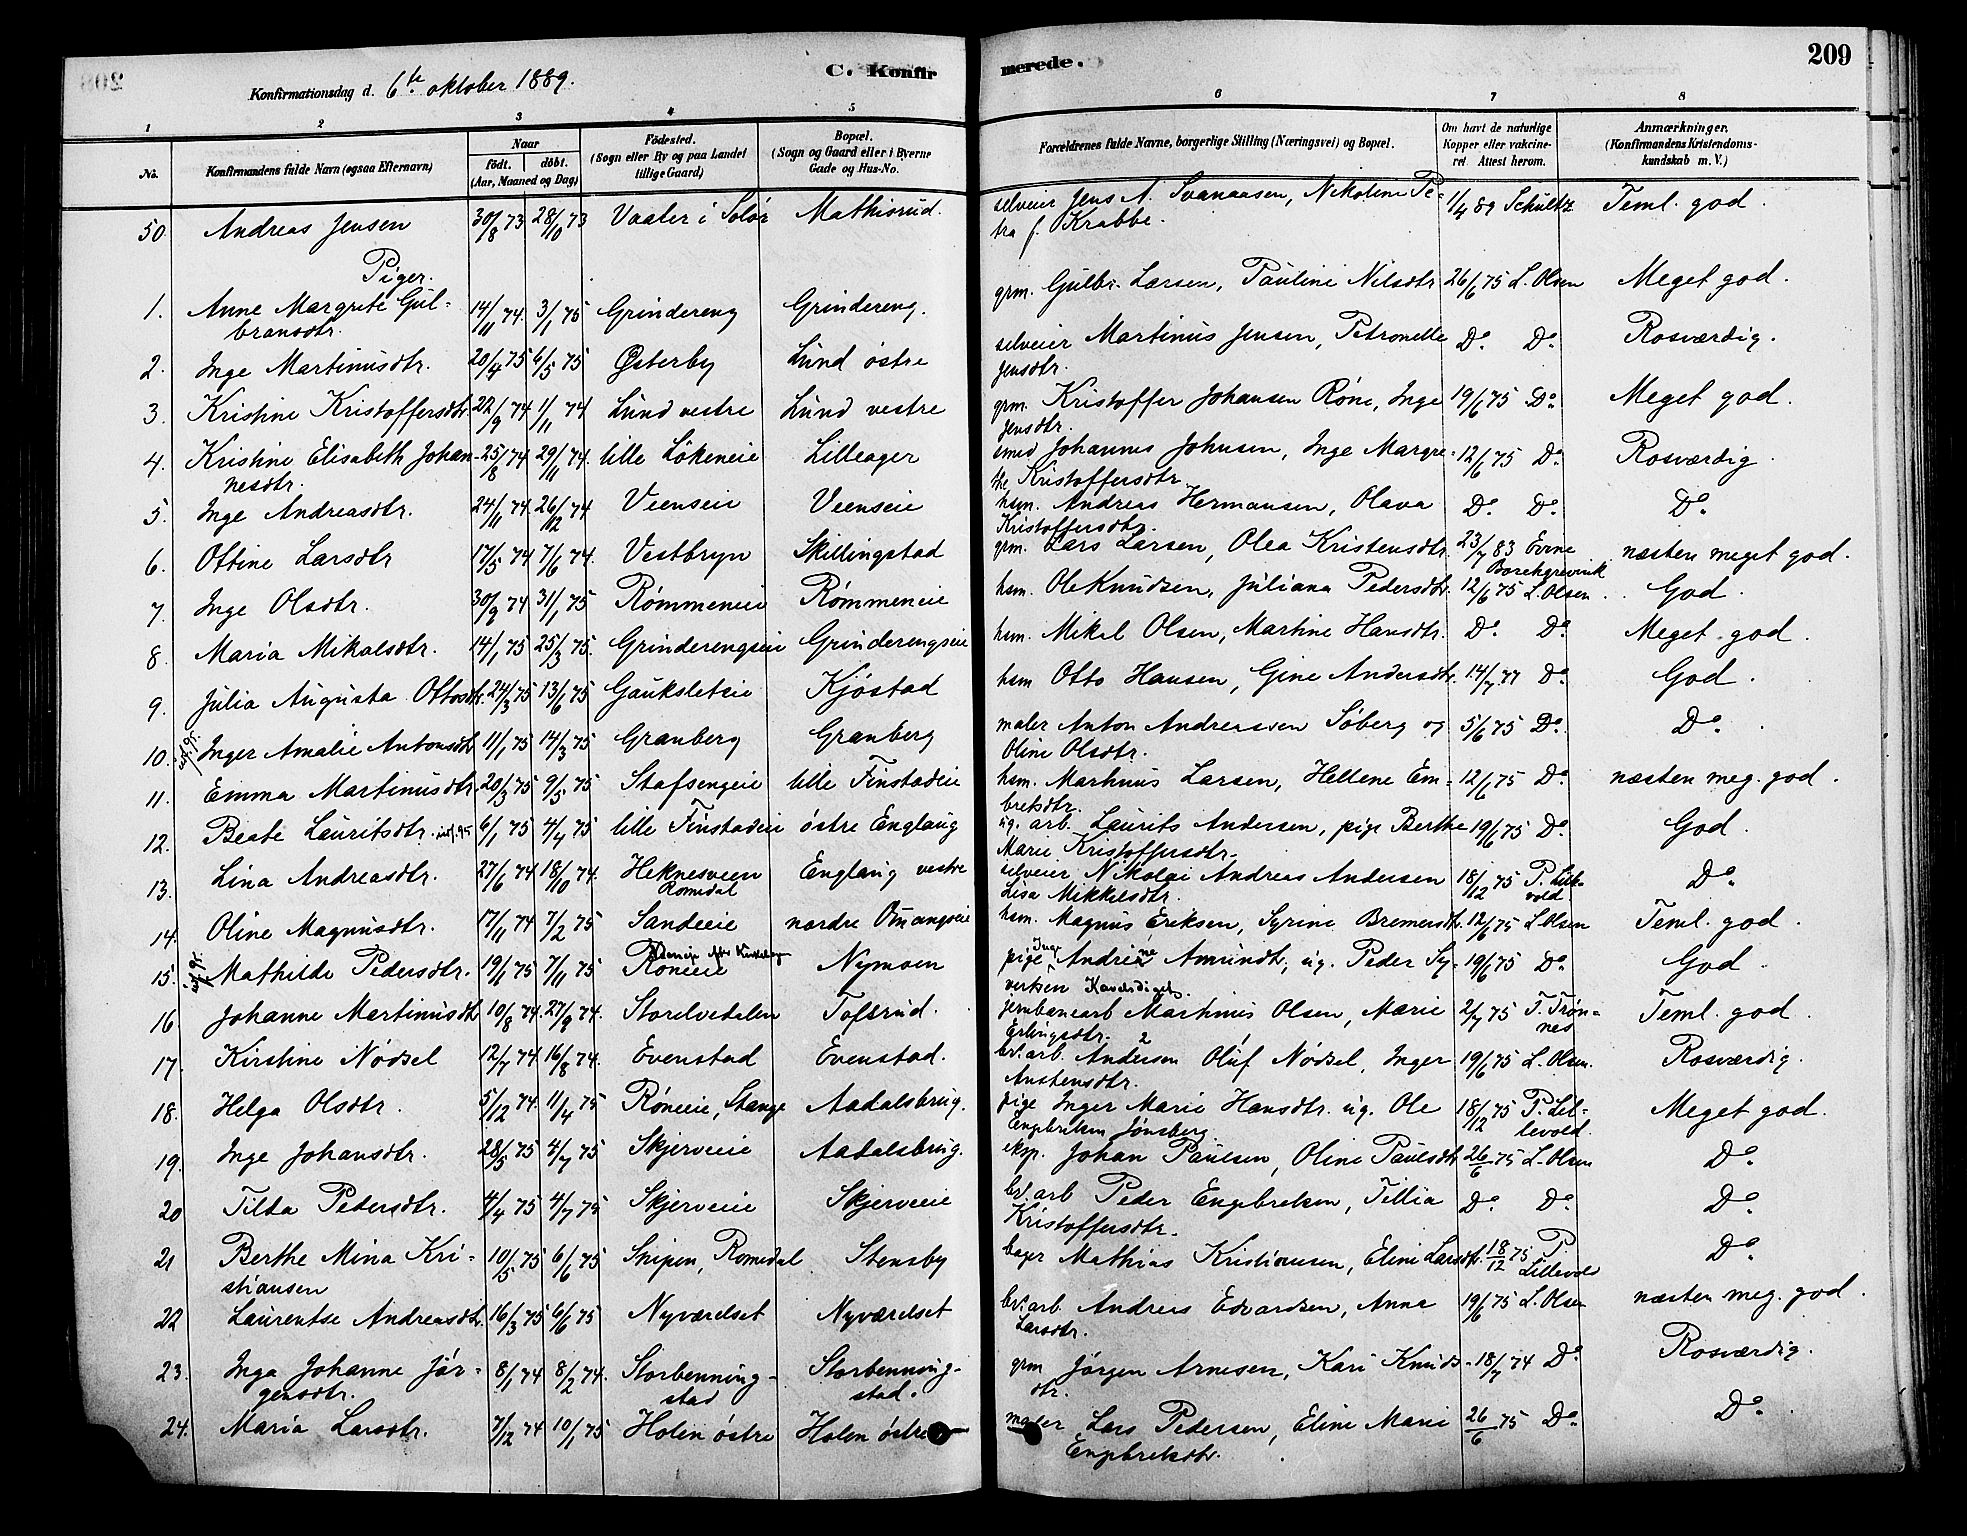 C. Konfir merede. 209
Konfirmationsdag d. 6te oktober 1889.
1 2 3 4 5 6 7 8
No. Konfirmandens fulde Navn (ogsaa Efternavn) Naar født. døbt. (Aar, Maaned og Dag) Födested. (Sogn eller By og paa Landet tillige Gaard) Bopæl. (Sogn og Gaard eller i Byerne Gade og Hus-No. Forældrenes fulde Navne, borgerlige Stilling (Næringsvei) og Bopæl. Om havt de naturlige Kopper eller vakcineret. Attest herom. Anmærkninger. (Konfirmandens Kristendomskundskab m. V.)
50. Andreas Jensen 30/8 73 28/10 73 Vaaler i Solør Mathisrud. selveier Jens A. Svanaasen, Nikoline Pe- 1/4 89 Schultz Teml. god.
tra f. Krabbe.
Piger.
1. Anne Margrete Gul- 14/11 74. 3/1 75 Grindereng Grindereng. grm. Gulbr. Larsen, Pauline Nilsdtr 26/6 75 L. Olsen Meget god.
bransdtr.
2. Inge Martinusdtr. 20/4 75 6/5 75 Østerby Lund østre selveier Martinus Jensen, Petronelle Do. Do. Rosværdig.
Jensdtr.
3. Kristine Kristoffersdtr 22/9 74 1/11 74 Lund vestre Lund vestre grm. Kristoffer Johansen Røne, Inge 19/6 75 Do. Meget god.
Jensdtr.
4. Kristine Elisabeth Johan- 25/8 74 29/11 74. lille Løkeneie Lilleager smed Johannes Johnsen, Inge Margre- 12/6 75 Do. Rosværdig.
nesdtr. the Kristoffersdtr.
5. Inge Andreasdtr. 24/11 74. 26/12 74 Veenseie Veenseie hsm. Andreas Hermansen, Olava Do. Do. Do.
Kristoffersdtr.
6. Ottine Larsdtr 17/5 74 7/6 74. Vestbryn Skillingstad grm. Lars Larsen, Olea Kristensdtr. 23/7 83 Evne Borchgrevink næsten meget god.
7. Inge Olsdtr. 30/9 74 31/1 75 Rømmeneie Rømmeneie hsm. Ole Knudsen, Juliana Pedersdtr. 12/6 75 L. Olsen. God.
8. Maria Mikalsdtr. 14/1 75 25/3 75. Grinderengseie Grinderengseie hsm. Mikal Olsen, Martine Hansdtr. Do. Do. Meget god.
9. Julia Augusta Ottosdtr. 24/3 75 13/6 75 Gaukstetseie Kjøstad hsm Otto Hansen, Gine Andersdtr. 14/7 77 Do. God.
10. Inger Amalie Antonsdtr 11/1 75 14/3 75 Granberg Granberg maler Anton Andreassen Søberg og 5/6 75 Do. Do.
Oline Olsdtr.
11. Emma Martinusdtr. 20/3 75 9/5 75 Stafsengeie lille Finstadeie hsm. Martinus Larsen, Hellene Em- 12/6 75 Do. næsten meg. god.
bretsdtr.
12. Beate Lauritsdtr. 6/1 75 4/4 75 lille Finstadeie østre Englaug ug. arb. Laurits Andersen, pige Berthe 19/6 75 Do. God.
Marie Kristoffersdtr.
13. Lina Andreasdtr. 27/6 74 18/10 74. Heknesveen Romedal Englaug vestre selveier Nikolai Andreas Andersen 18/12 75 P. Lille-
vold. Do.
Lisa Mikkelsdtr.
14. Oline Magnusdtr. 17/11 74 7/2 75 Sandeeie nordre Omangseie hsm. Magnus Eriksen, Syrine Bremersdtr. 12/6 75 L. Olsen Teml. god.
15. Mathilde Pedersdtr. 19/6 75 7/11 75 Røneeie Nymoen pige Inge Andrine Amundtr, ug. Peder Sy- 19/6 75 Do. God.
vertsen
16 Johanne Martinusdtr 10/8 74. 27/9 74. Storelvedalen Toftsrud. jernbanearb Martinus Olsen, Marie 2/7 75 T. Trøn-
nes Teml. god.
Erlingsdtr.
17. Kirstine Nødsel 12/7 74. 16/8 74. Evenstad Evenstad. br. arb. Andersen Oluf Nødsel, Inger 19/6 75 L. Olsen. Rosværdig.
2 1
Austensdtr.
18. Helga Olsdtr. 5/12 74. 11/4 75 Røneeie, Stange Aadalsbrug. pige Inger Marie Hansdtr. ug. Ole 18/12 75 P. Lil-
levold. Meget god.
Engebretsen Jønsberg.
19. Inge Johansdtr. 28/5 75 4/7 75 Skjerveie Aadalsbrug. eksp. Johan Paulsen, Oline Paulsdtr 26/6 75 L. Olsen Do.
20 Tilda Pedersdtr. 4/4 75 4/7 75 Skjerveie Skjerveie br. arb Peder Engebretsen, Tillia Do. Do. Do.
Kristoffersdtr.
21 Berthe Mina Kri- 10/5 75 6/6 75 Snipen, Romedal Stensby bager Mathias Kristiansen, Eline Larsdtr. 18/12 75 P. Lillevold Do.
stiansen
22 Laurentse Andreasdtr. 16/3 75 6/6 75 Nyværelset Nyværelset br. arb. Andreas Edvardsen, Anna 19/6 75 L. Olsen næsten meg. god.
Larsdtr.
23. Inga Johanne Jør- 8/1 74 8/2 74. Storbenning- Storbenning- grm Jørgen Arnesen, Kari Knuds- 18/7 74 Do. Rosværdig.
gensdtr. stad stad. dtr.
24. Maria Larsdtr. 7/12 74 10/1 75 Holen østre Holen østre Lars Pedersen, Eline Marie 26/6 75 Do. Do.
Engebretsdtr.